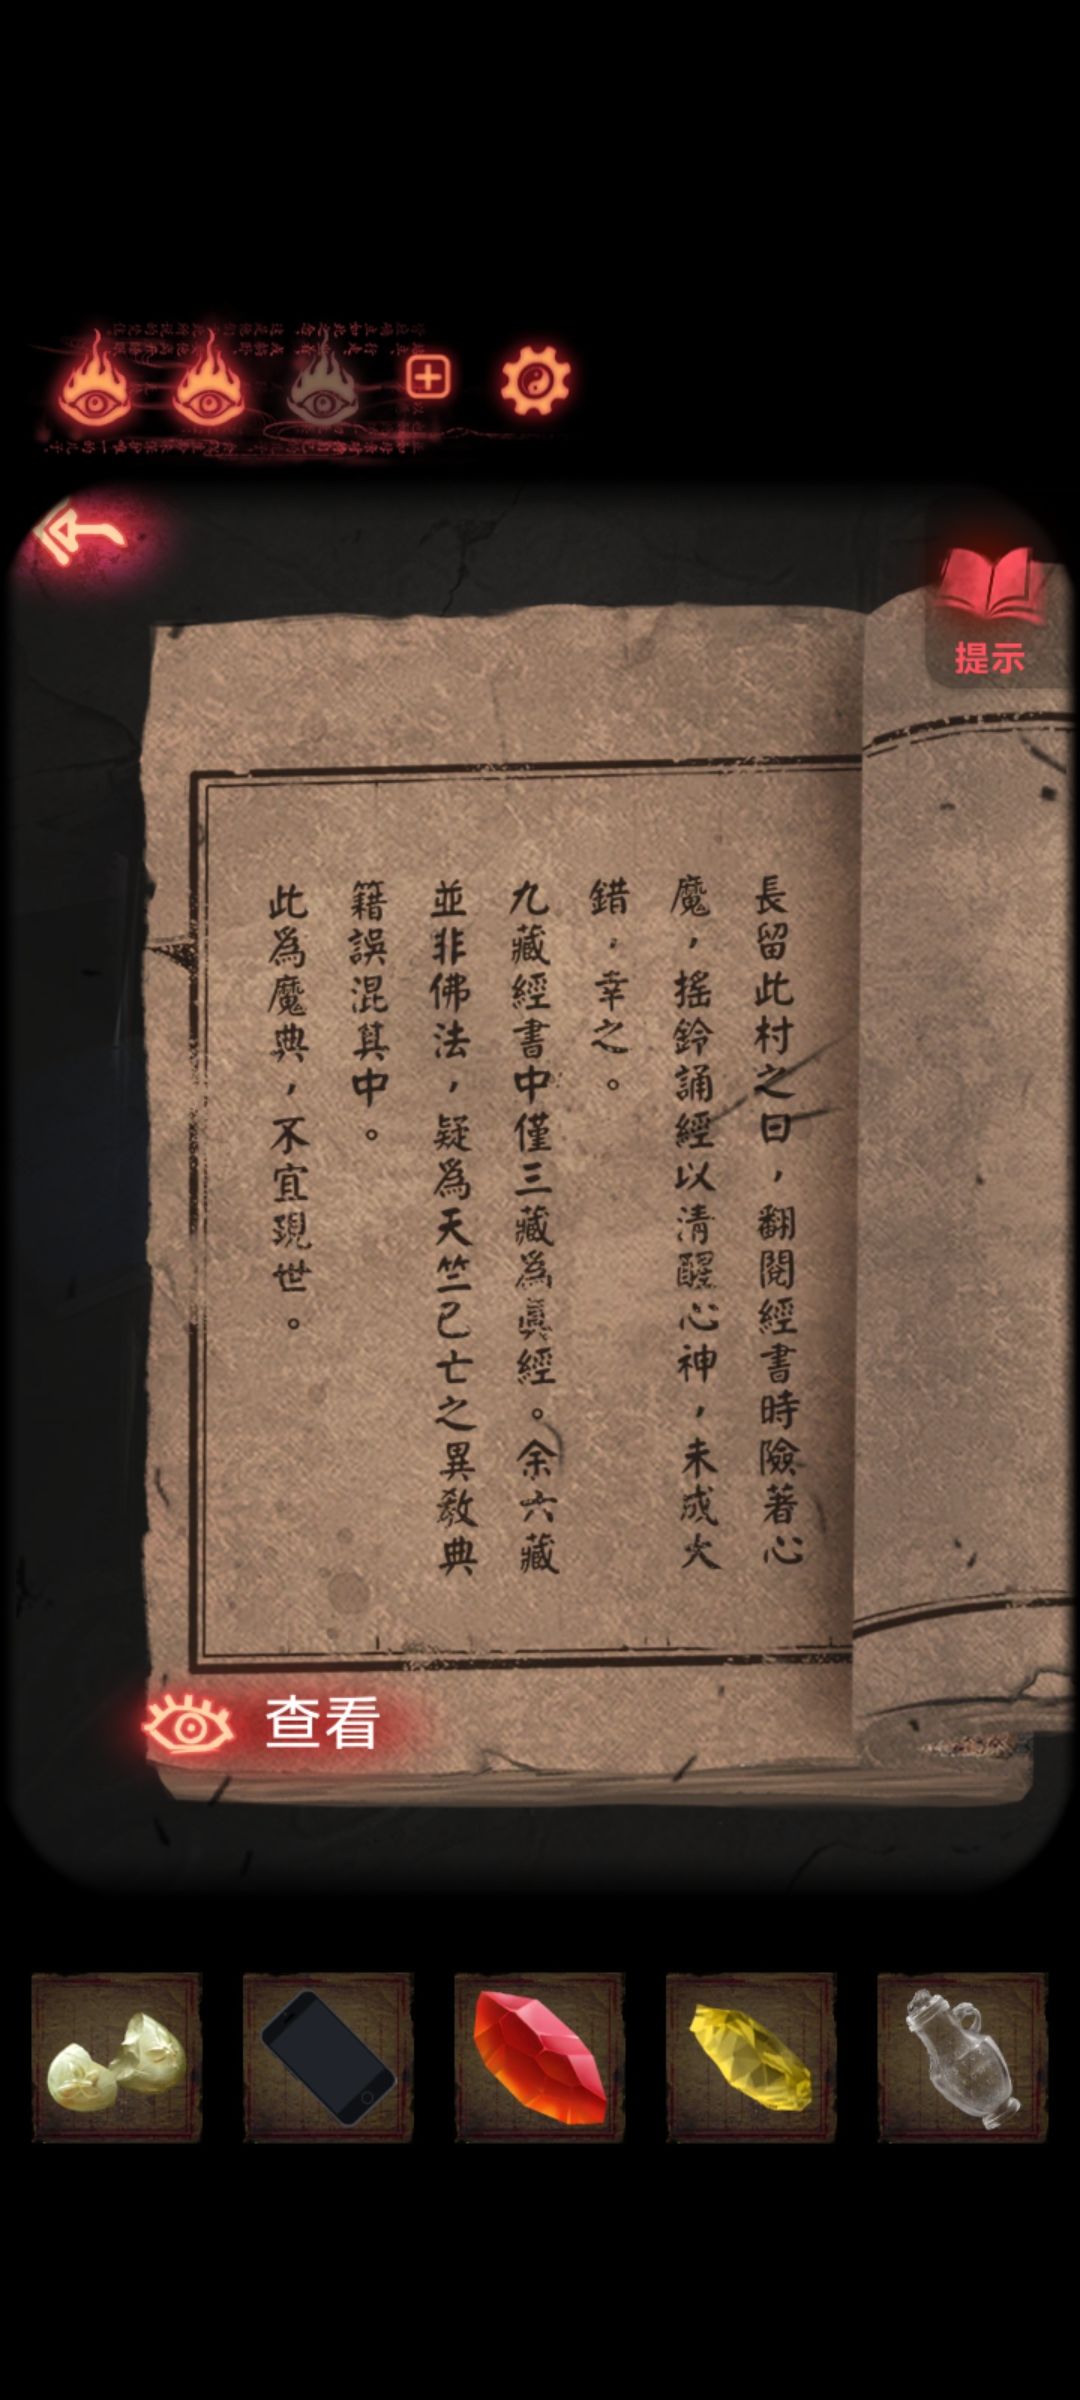 提示
長留此村之日，翻閱經書時險著心
魔，搖鈴誦經以清醒心神，未成大
錯，幸之。
九藏經書中僅三藏為真經。余六藏
並非佛法，疑為天竺已亡之異教典
籍誤混其中。
此為魔典，不宜現世。
查看